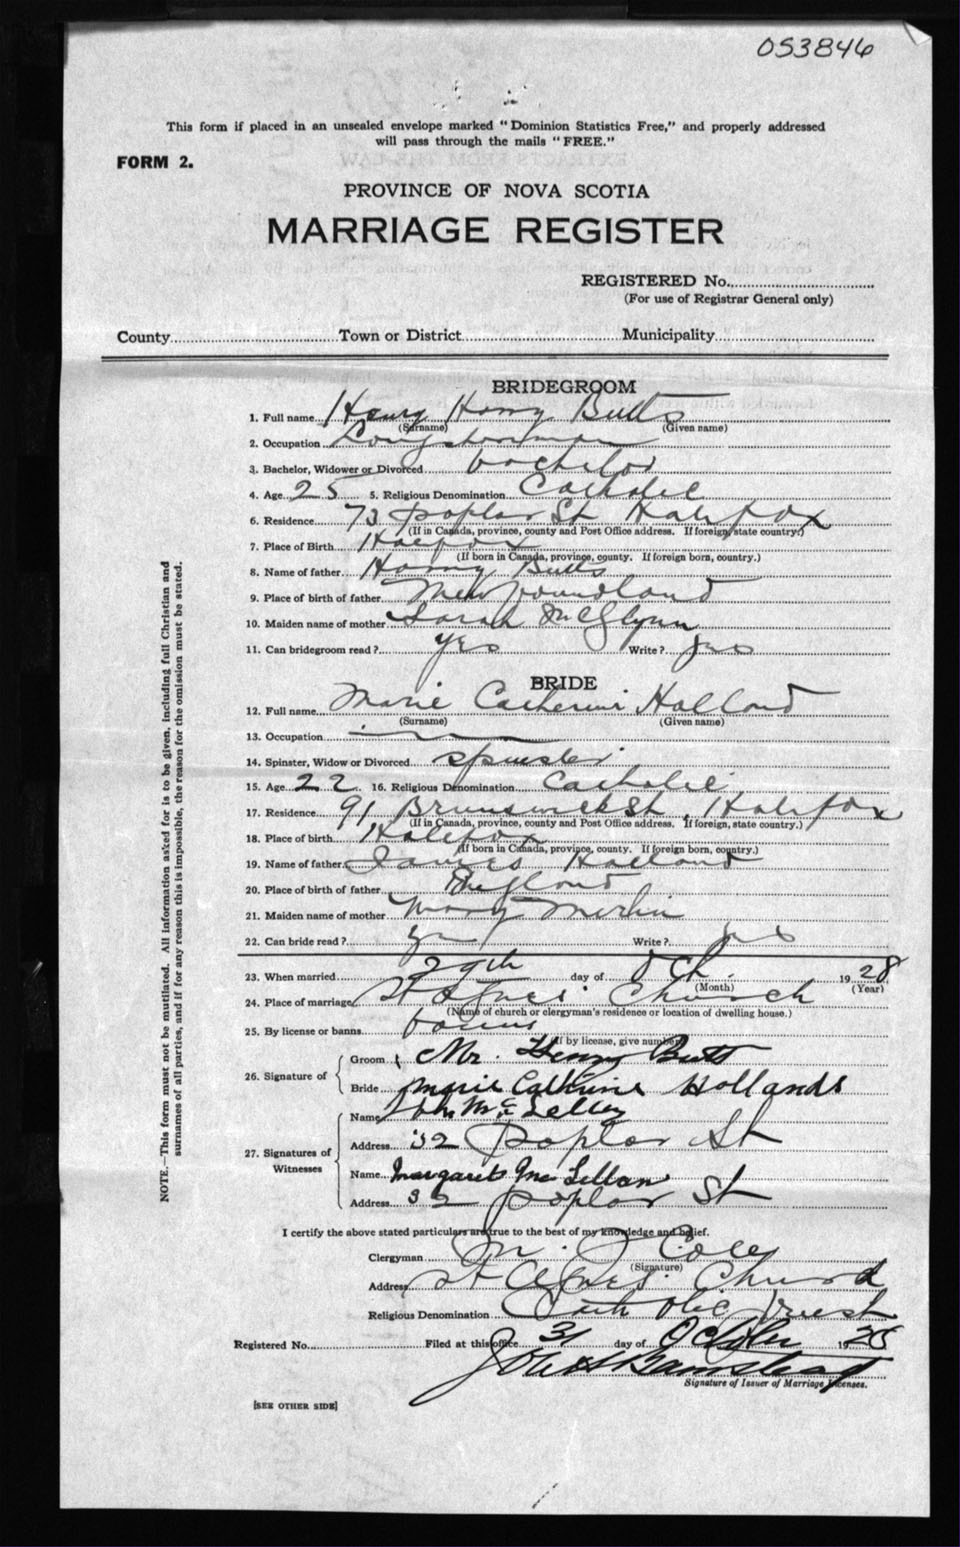 053846
This form if placed in an unsealed envelope marked "Dominion Statistics Free," and properly addressed
will pass through the mails "FREE."
FORM 2.
PROVINCE OF NOVA SCOTIA
MARRIAGE REGISTER
REGISTERED No.
(For use of Registrar General only)
County Town or District Municipality
BRIDEGROOM
1. Full name Henry Harry Butts
(Surname) (Given name)
2. Occupation Longshoreman
3. Bachelor, Widower or Divorced bachelor
4. Age 25 5. Religious Denomination Catholic
6. Residence 73 Poplar St Halifax
(If in Canada, province, county and Post Office address. If foreign, state country.)
7. Place of Birth Halifax
(If born in Canada, province, county. If foreign born, country.)
8. Name of father Harry Butts
9. Place of birth of father Newfoundland
10. Maiden name of mother Sarah McGlynn
11. Can bridegroom read? yes Write? yes
BRIDE
12. Full name Marie Catherine Holland
(Surname) (Given name)
13. Occupation
14. Spinster, Widow or Divorced spinster
15. Age 22 16. Religious Denomination Catholic
17. Residence 91 Brunswick St, Halifax
(If in Canada, province, county and Post Office address. If foreign, state country.)
18. Place of birth Halifax
(If born in Canada, province, county. If foreign born, country.)
19. Name of father James Holland
20. Place of birth of father England
21. Maiden name of mother Mary Merlin
22. Can bride read? yes Write? yes
23. When married 29th day of Oct. 1928
(Month) (Year)
24. Place of marriage St Agnes' Church
(Name of church or clergyman's residence or location of dwelling house.)
25. By license or banns banns
(If by license, give number)
26. Signature of
Groom Mr. Henry Butts
Bride Marie Catherine Hollands
27. Signatures of Witnesses
Name John Mc Lellan
Address 32 Poplar St
Name Margaret Mc Lellan
Address 32 Poplar St
I certify the above stated particulars are true to the best of my knowledge and belief.
Clergyman
(Signature)
Address St Agnes' Church
Religious Denomination Catholic Priest
Registered No. Filed at this office 31 day of October 1928
Signature of Issuer of Marriage Licenses.
[SEE OTHER SIDE]
NOTE.—This form must not be mutilated. All information asked for is to be given, including full Christian and
surnames of all parties, and if for any reason this is impossible, the reason for the omission must be stated.